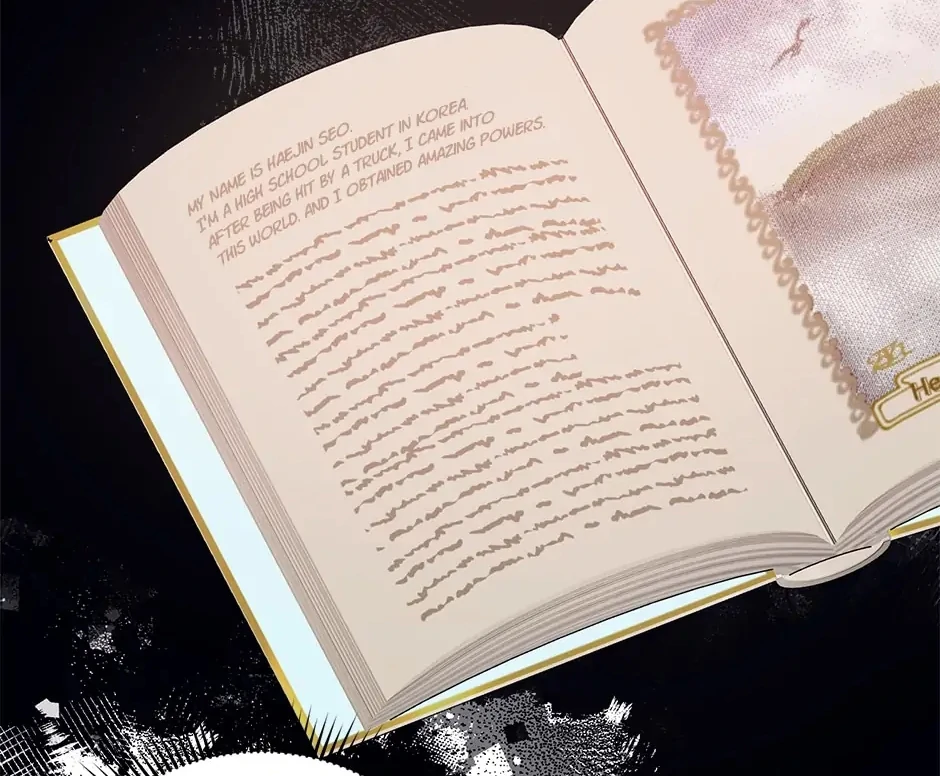 MY NAME IS HAEJIN SEO.
I'M A HIGH SCHOOL STUDENT IN KOREA
AFTER BEING HIT BY A TRUCK, I CAME INTO
THIS WORLD. AND I OBTAINED AMAZING POWERS.
He